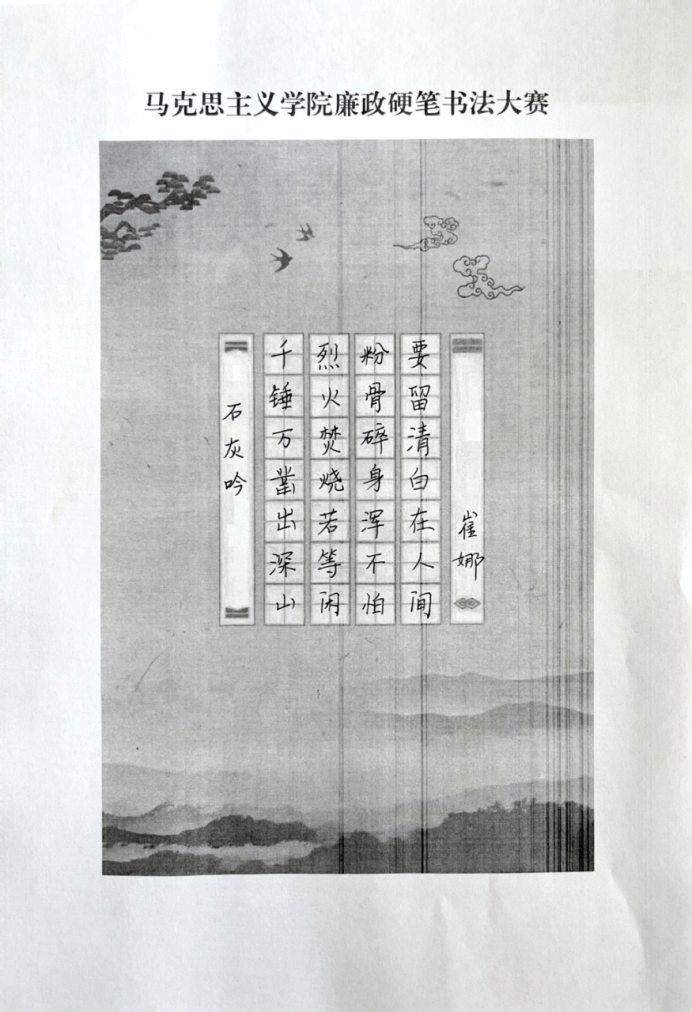 马克思主义学院廉政硬笔书法大赛
石灰吟
千锤万凿出深山
烈火焚烧若等闲
粉骨碎身浑不怕
要留清白在人间
崔娜